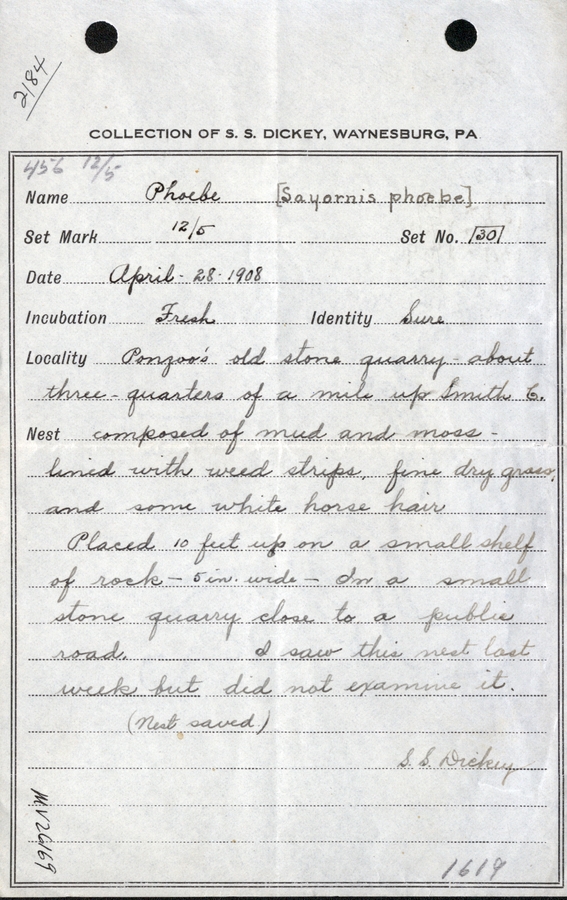 2184
COLLECTION OF S. S. DICKEY, WAYNESBURG, PA
456 12/5
Name Phoebe [Sayornis phoebe]
Set Mark 12/5 Set No. 30
Date April - 28 - 1908
Incubation Fresh Identity Sure
Locality Ponzoo's old stone quarry - about
three - quarters of a mile up Smith C.
Nest composed of mud and moss -
lined with weed strips, fine dry grass,
and some white horse hair
Placed 10 feet up on a small shelf
of rock - 5 in. wide - In a small
stone quarry close to a public
road. I saw this nest last
week but did not examine it.
(Nest saved)
S. S. Dickey
MV26169
1619